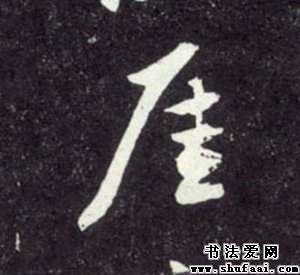 厓
书法爱网
www.shufaai.com